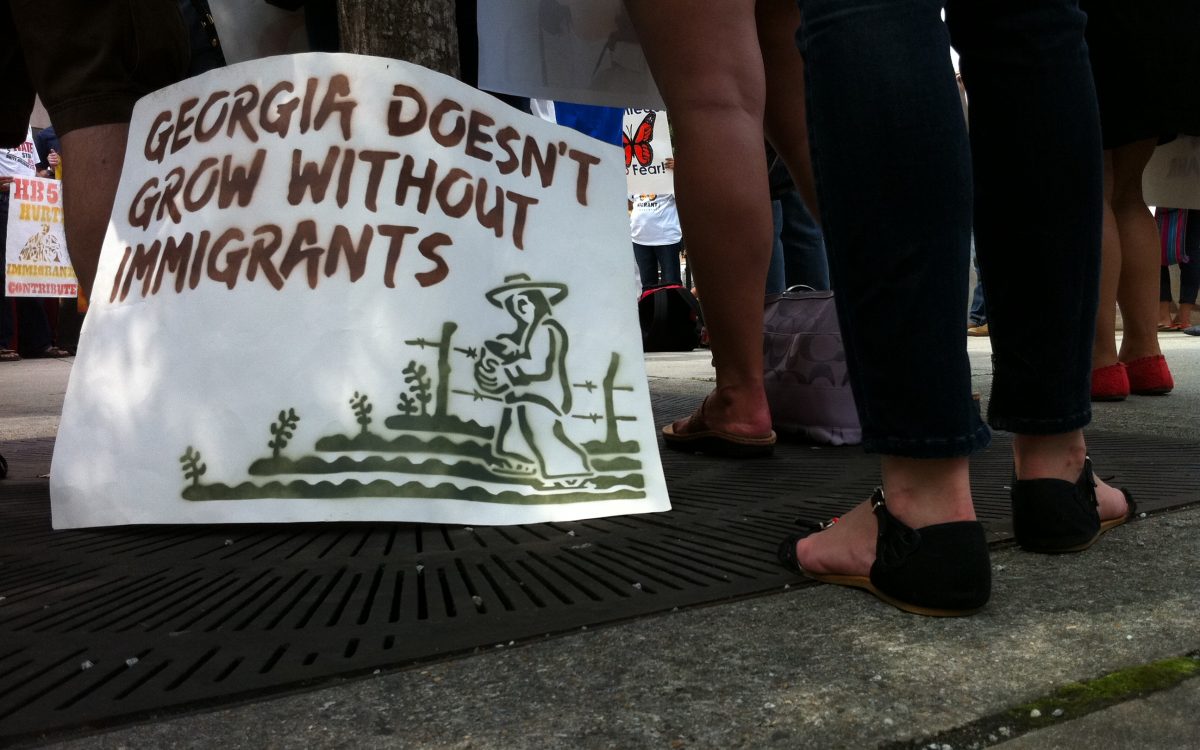 GEORGIA DOESN'T
GROW WITHOUT
IMMIGRANTS
HB5
HURT
IMMIGRAN
CONTRIBUTE
Fear!